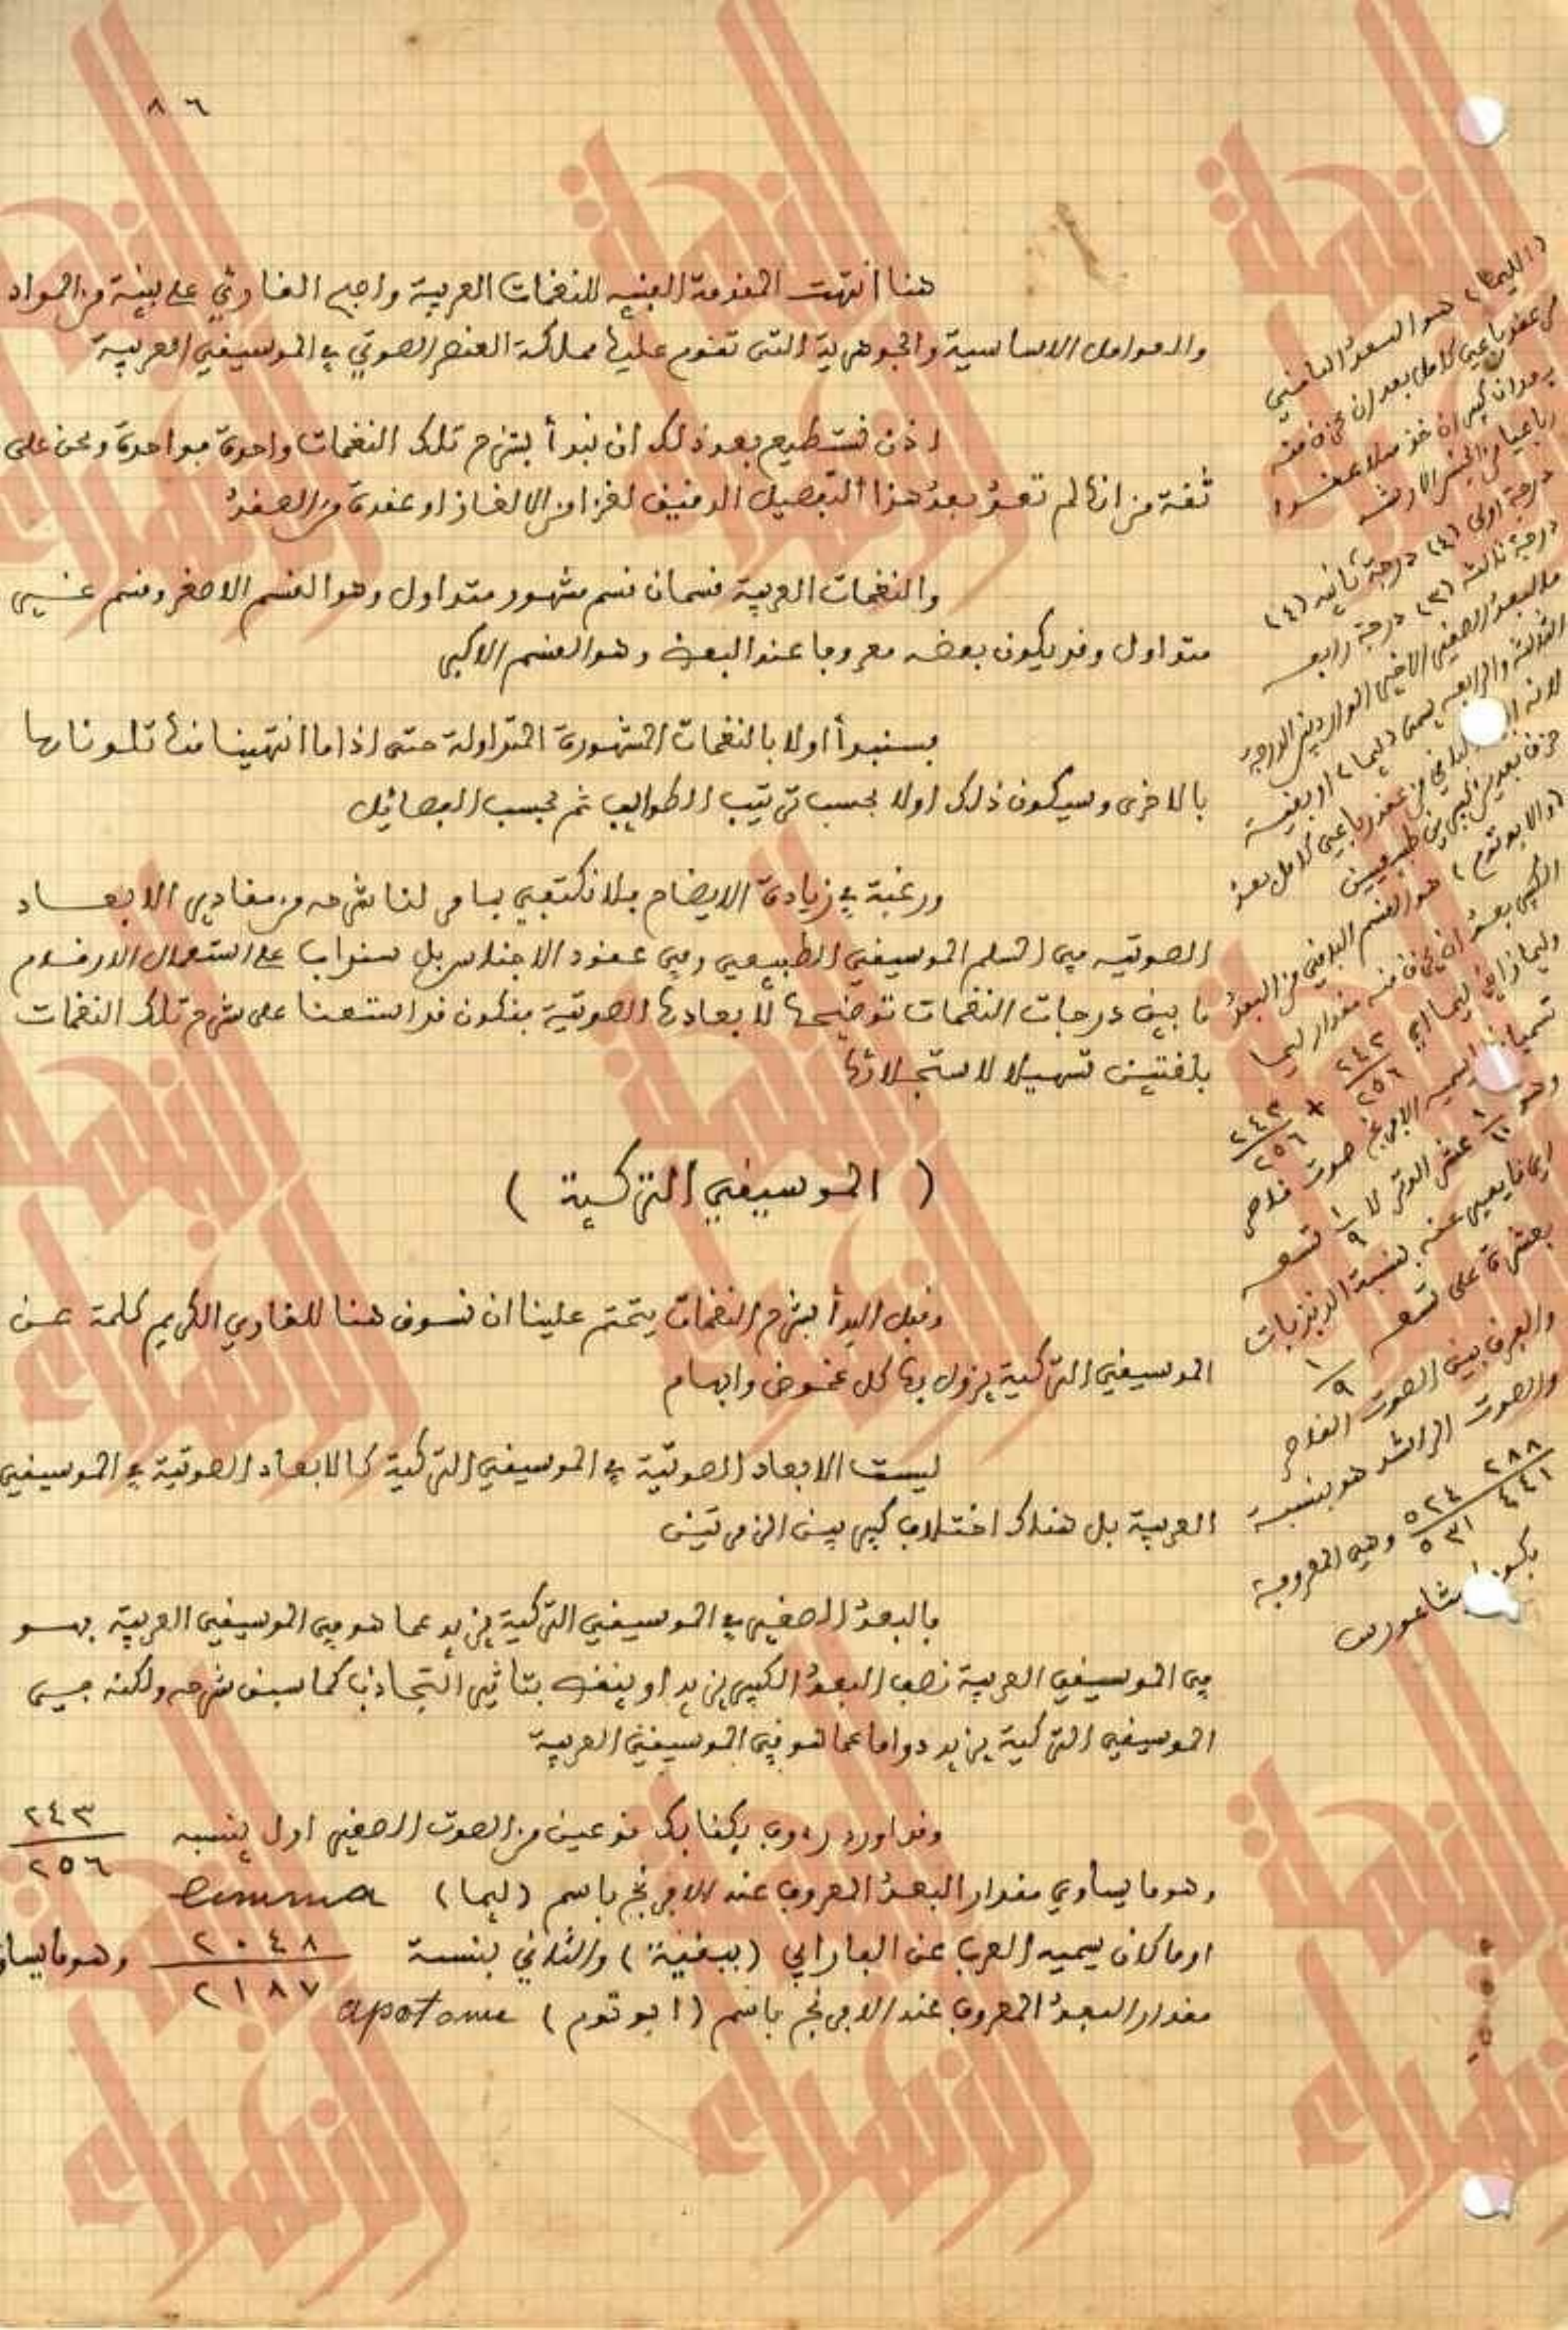 ٨٦
هنا انتهت المقدمة الفنيه للنغمات العربية واصبح القارئ على بينة من المواد
والعوامل الاساسية والجوهرية التى تقوم عليها مملكة العنصر الصوتي في الموسيقى العربية
اذن نستطيع بعد ذلك ان نبدأ بشرح تلك النغمات واحدة فواحدة ونحن على
ثقة من انها لم تعد بعد هذا التفصيل الدقيق لغزا من الالغاز او عقدة من العقد
والنغمات العربية قسمان قسم مشهور متداول وهو القسم الاصغر وقسم غير
متداول وقد يكون بعضه معروفا عند البعض وهو القسم الاكبر
فسنبدأ اولا بالنغمات المشهورة المتداولة حتى اذا ما انتهينا منها تلوناها
بالاخرى وسيكون ذلك اولا بحسب ترتيب الطوابع ثم بحسب الفصائل
ورغبة في زيادة الايضاح فلا نكتفي بما مر لنا شرحه من مقادير الابعاد
الصوتيه في السلم الموسيقي الطبيعي وفي عقود الاجناس بل سنداب على استعمال الارقام
ما بين درجات النغمات توضيحا لابعادها الصوتية فنكون قد استعنا على شرح تلك النغمات
بلغتين تسهيلا لاستجلائها
( الموسيقى التركية )
وقبل البدأ بشرح النغمات يتحتم علينا ان نسوق هنا للقاري الكريم كلمة عن
الموسيقى التركية يزول بها كل غموض وابهام
ليست الابعاد الصوتية في الموسيقى التركية كالابعاد الصوتية في الموسيقى
العربية بل هناك اختلاف كبير بين الزمرتين
فالبعد الصغير في الموسيقى التركية يزيد عما هو في الموسيقى العربية فهو
في الموسيقى العربية نصف البعد الكبير يزيد او ينقص بتاثير التجاذب كما سبق شرحه ولكنه في
الموسيقى التركية يزيد دواما عما هو في الموسيقى العربية
وقد اورد رءوف يكتا بك نوعين من الصوت الصغير اول بنسبه ٢٤٣/٢٥٦
وهو ما يساوي مقدار البعد المعروف عند الافرنج باسم (ليما) limma
او ما كان يسميه العرب عن الفارابي (ببقية) والثاني بنسبة ٢٠٤٨/٢١٨٧ وهو ما يساو
مقدار البعد المعروف عند الافرنج باسم (ابوتوم) apotome
(الليما) هو البعد الباقي
من عقد رباعي كامل بعد ان يحذف منه
بعدان كبيران خذ مثلا عقدا
رباعيا من الجنس الارشد
درجة اولى (٤) درجة ثانيه (٤)
درجة ثالثه (٣) درجة رابعه
فالبعد الصغير الاخير الوارد بين الدرجة
الثالثه والرابعه يسمى (ليما) او بقية
لانه الباقي من عقد رباعي كامل بعد
حذف بعدين كبيرين طبيعيين
(والابوتوم) هو القسم الباقي من البعد
الكبير بعد ان يحذف منه مقدار ليما
وليما زائد ليما اي ٢٤٣/٢٥٦ + ٢٤٣/٢٥٦
يسميه الافرنج صوت قاصر
وهو ١/١٠ عشر الوتر لا ١/٩ تسعه
اى ما يعبر عنه بنسبة الذبذبات
بعشرة على تسعه ١/٩
والفرق بين الصوت القاصر
والصوت الراشد هو بنسبة
٥٢٤ ٢٨٨/٥٣١ ٤٤١ وهي المعروفة
بكوما فيثاغورس